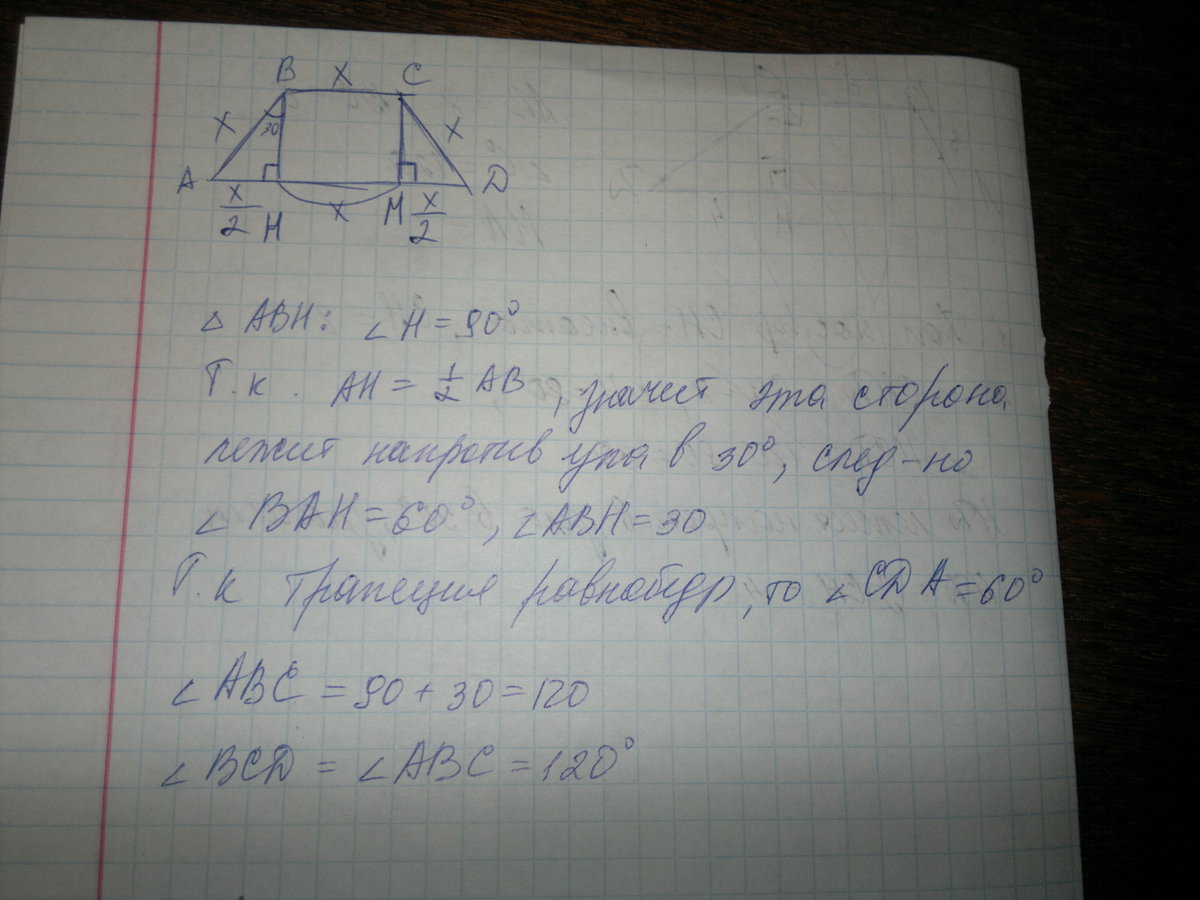 B x C
x 30 x
A D
x/2 H x M x/2
△ ABH: ∠H = 90°
Т.к. AH = 1/2 AB, значит эта сторона
лежит напротив угла в 30°, след-но
∠BAH = 60°, ∠ABH = 30
Т.к трапеция равнобедр, то ∠CDA = 60°
∠ABC = 90 + 30 = 120
∠BCD = ∠ABC = 120°